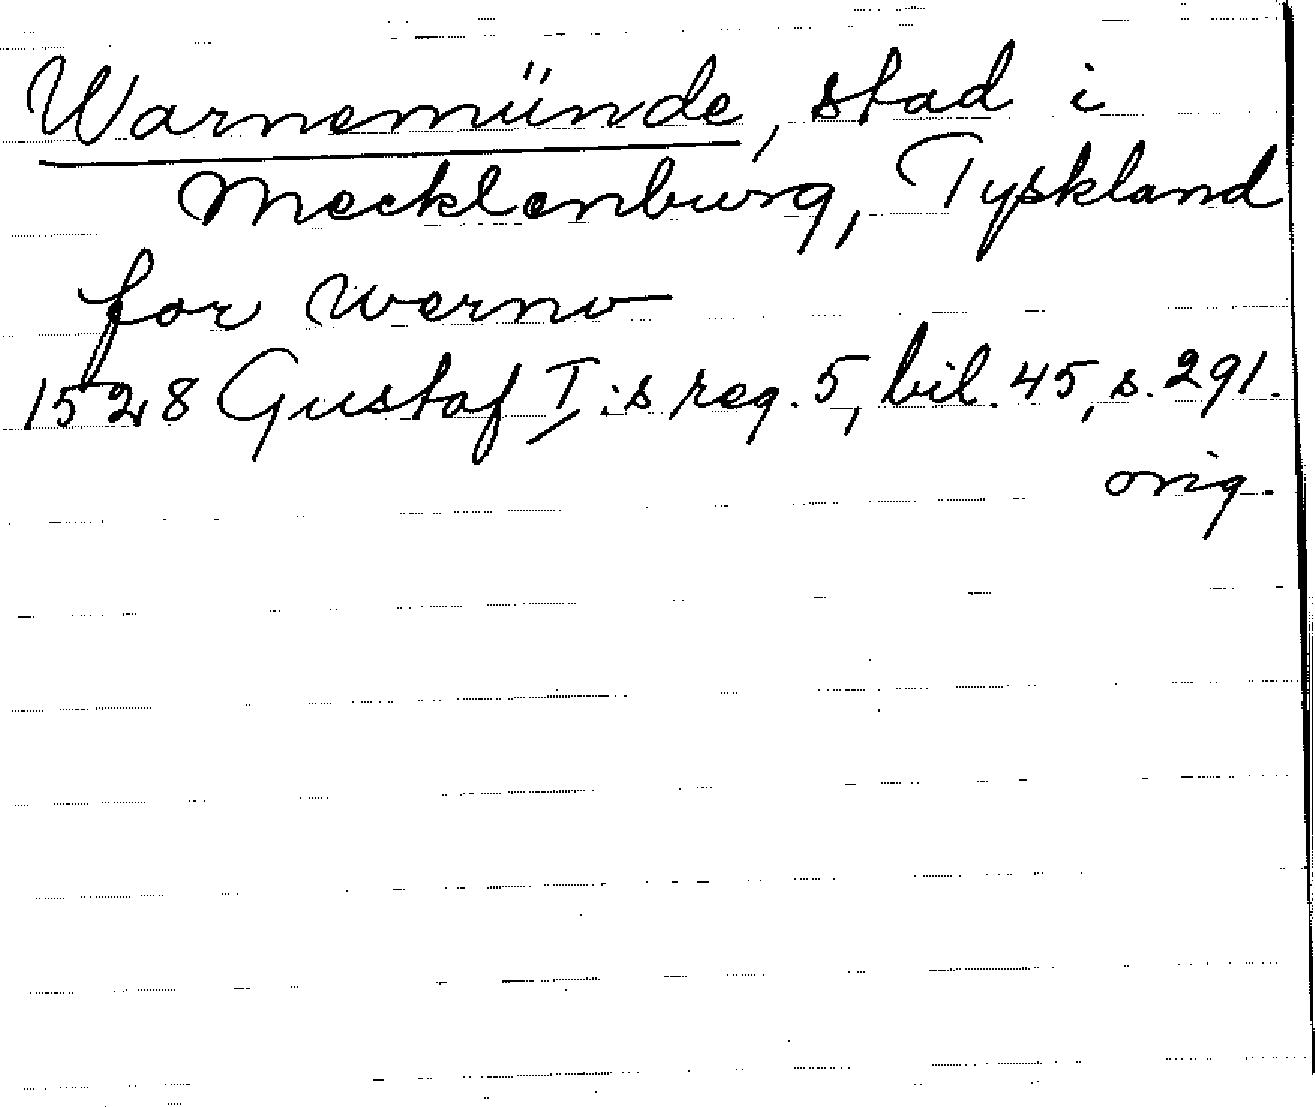 Warnemünde, stad i
Mecklenburg, Tyskland
for werno
1528 Gustaf I:s reg. 5, bil. 45, s. 291.
orig.